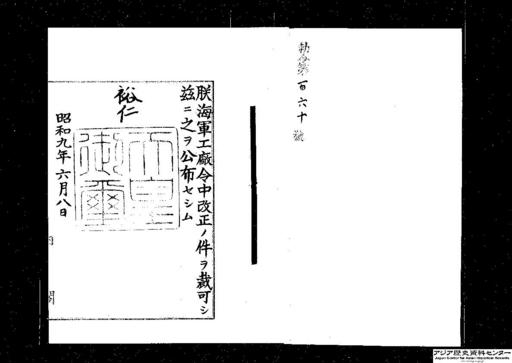 勅令第百六十號
朕海軍工廠令中改正ノ件ヲ裁可シ
茲ニ之ヲ公布セシム
裕仁
天皇御璽
昭和九年六月八日
内閣
アジア歴史資料センター
Japan Center for Asian Historical Records